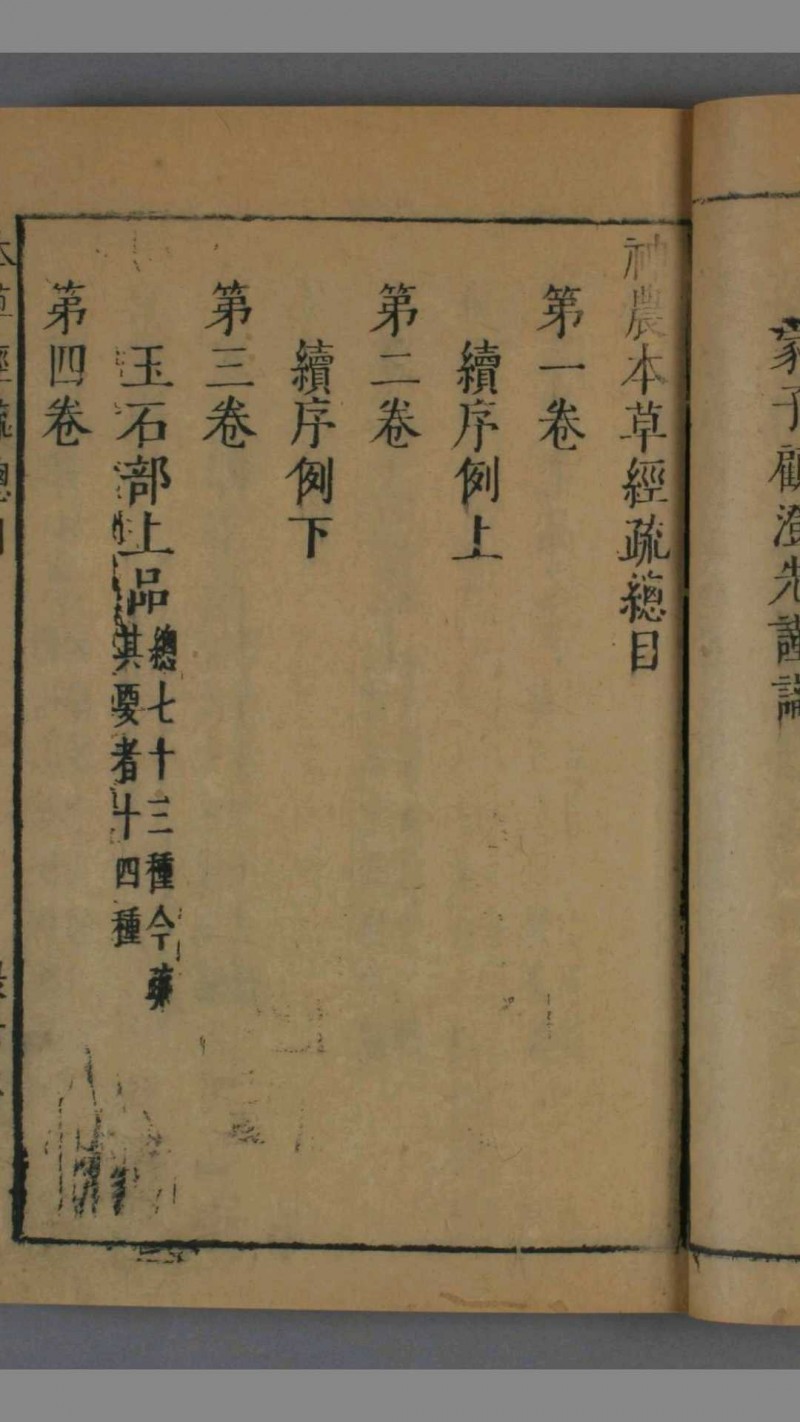 家子顧澄先謹識
神農本草經疏總目
第一卷
續序例上
第二卷
續序例下
第三卷
玉石部上品總七十三種今疏
其要者十四種
第四卷
本草經疏總目